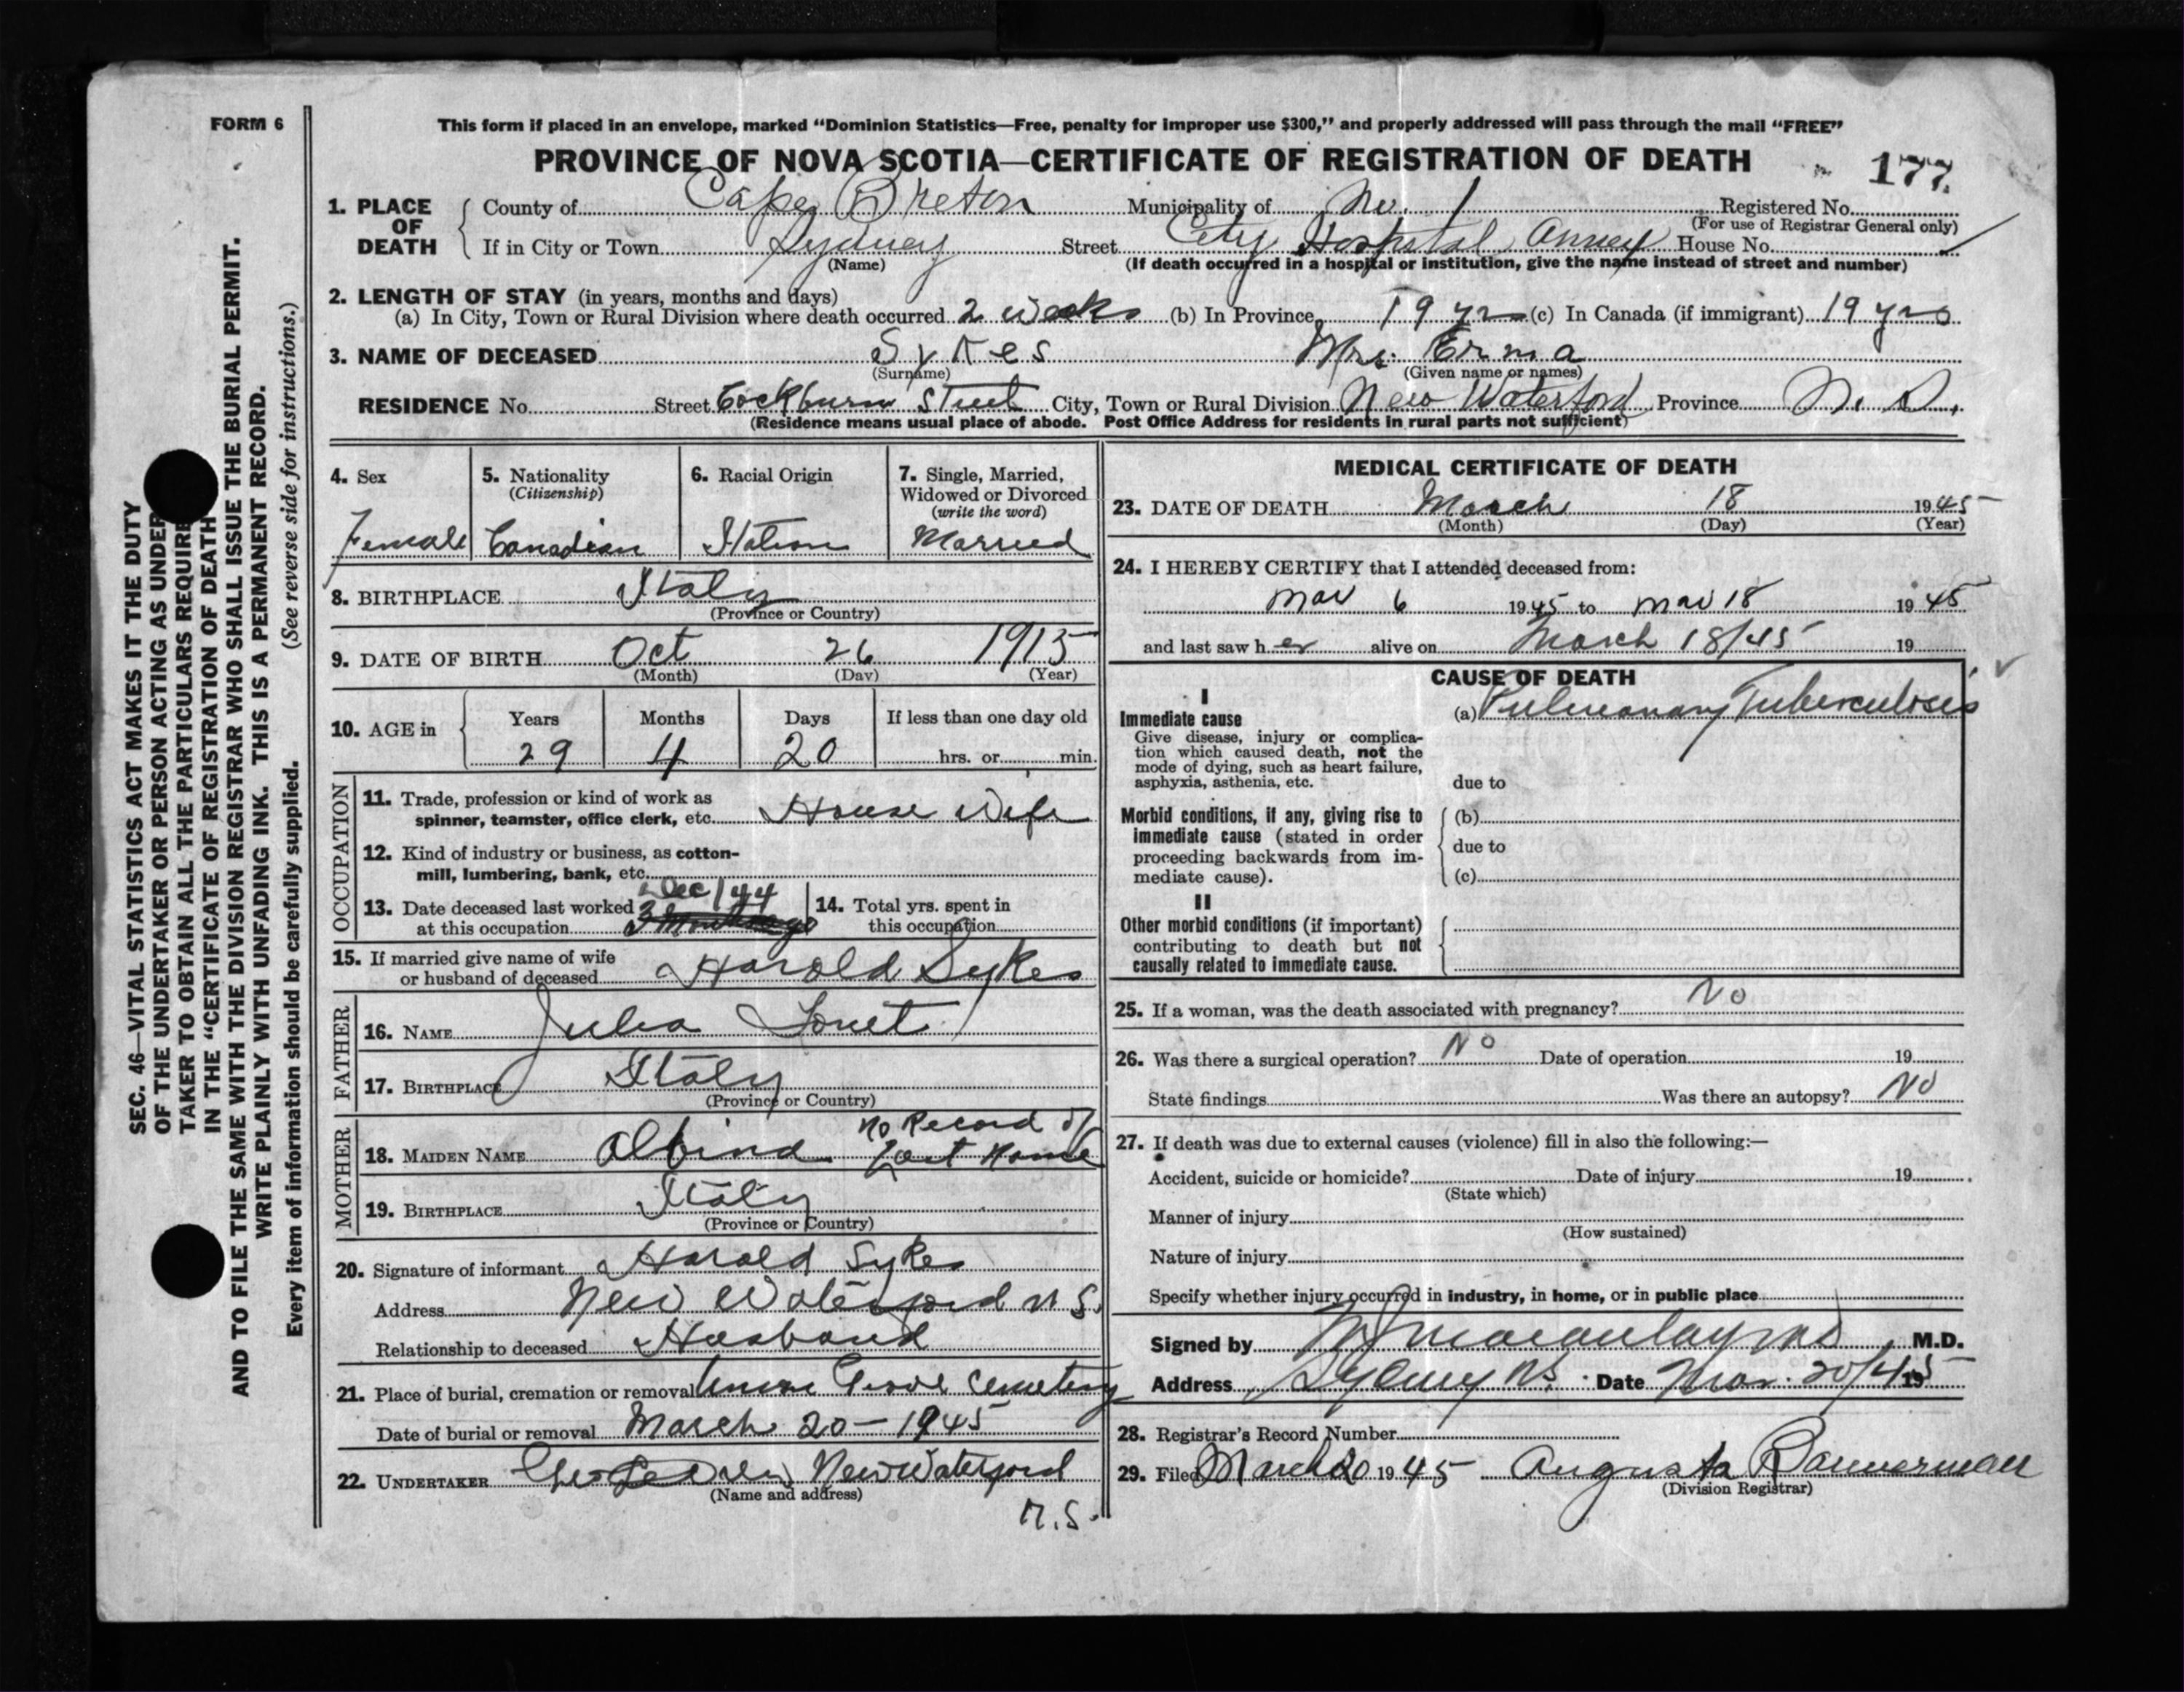 FORM 6
This form if placed in an envelope, marked “Dominion Statistics—Free, penalty for improper use $300,” and properly addressed will pass through the mail “FREE”
PROVINCE OF NOVA SCOTIA—CERTIFICATE OF REGISTRATION OF DEATH
177
1. PLACE OF DEATH
County of Cape Breton Municipality of No. 1 Registered No.
(For use of Registrar General only)
If in City or Town Sydney Street City Hospital Annex House No.
(Name) (If death occurred in a hospital or institution, give the name instead of street and number)
2. LENGTH OF STAY (in years, months and days)
(a) In City, Town or Rural Division where death occurred 2 weeks (b) In Province 19 yrs (c) In Canada (if immigrant) 19 yrs
3. NAME OF DECEASED Sykes Mrs. Erma
(Surname) (Given name or names)
RESIDENCE No. Street Cockburn Street City, Town or Rural Division New Waterford Province N. S.
(Residence means usual place of abode. Post Office Address for residents in rural parts not sufficient)
4. Sex
Female
5. Nationality
(Citizenship)
Canadian
6. Racial Origin
Italian
7. Single, Married,
Widowed or Divorced
(write the word)
Married
8. BIRTHPLACE Italy
(Province or Country)
9. DATE OF BIRTH Oct 26 1915
(Month) (Day) (Year)
10. AGE in
Years Months Days If less than one day old
29 4 20 hrs. or min.
OCCUPATION
11. Trade, profession or kind of work as
spinner, teamster, office clerk, etc. House Wife
12. Kind of industry or business, as cotton-
mill, lumbering, bank, etc.
13. Date deceased last worked Dec/44
at this occupation
14. Total yrs. spent in
this occupation
15. If married give name of wife
or husband of deceased Harold Sykes
FATHER
16. NAME Julia
17. BIRTHPLACE Italy
(Province or Country)
MOTHER
18. MAIDEN NAME Albina No Record of
Last Name
19. BIRTHPLACE Italy
(Province or Country)
20. Signature of informant Harold Sykes
Address New Waterford N S.
Relationship to deceased Husband
21. Place of burial, cremation or removal Grove Cemetery
Date of burial or removal March 20 – 1945
22. UNDERTAKER New Waterford
(Name and address)
N.S.
MEDICAL CERTIFICATE OF DEATH
23. DATE OF DEATH March 18 1945
(Month) (Day) (Year)
24. I HEREBY CERTIFY that I attended deceased from:
Mar 6 1945 to Mar 18 1945
and last saw her alive on March 18/45 19
CAUSE OF DEATH
I
Immediate cause
Give disease, injury or complica-
tion which caused death, not the
mode of dying, such as heart failure,
asphyxia, asthenia, etc.
(a) Pulmonary Tuberculosis
due to
Morbid conditions, if any, giving rise to
immediate cause (stated in order
proceeding backwards from im-
mediate cause).
(b)
due to
(c)
II
Other morbid conditions (if important)
contributing to death but not
causally related to immediate cause.
25. If a woman, was the death associated with pregnancy? No
26. Was there a surgical operation? No Date of operation 19
State findings Was there an autopsy? No
27. If death was due to external causes (violence) fill in also the following:—
Accident, suicide or homicide? Date of injury 19
(State which)
Manner of injury
(How sustained)
Nature of injury
Specify whether injury occurred in industry, in home, or in public place
Signed by Macaulay MD M.D.
Address Sydney NS. Date Mar. 20/45 19
28. Registrar's Record Number
29. Filed March 20 1945 Augusta Bannerman
(Division Registrar)
SEC. 46—VITAL STATISTICS ACT MAKES IT THE DUTY
OF THE UNDERTAKER OR PERSON ACTING AS UNDER
TAKER TO OBTAIN ALL THE PARTICULARS REQUIRE
IN THE “CERTIFICATE OF REGISTRATION OF DEATH
AND TO FILE THE SAME WITH THE DIVISION REGISTRAR WHO SHALL ISSUE THE BURIAL PERMIT.
WRITE PLAINLY WITH UNFADING INK. THIS IS A PERMANENT RECORD.
Every item of information should be carefully supplied. (See reverse side for instructions.)